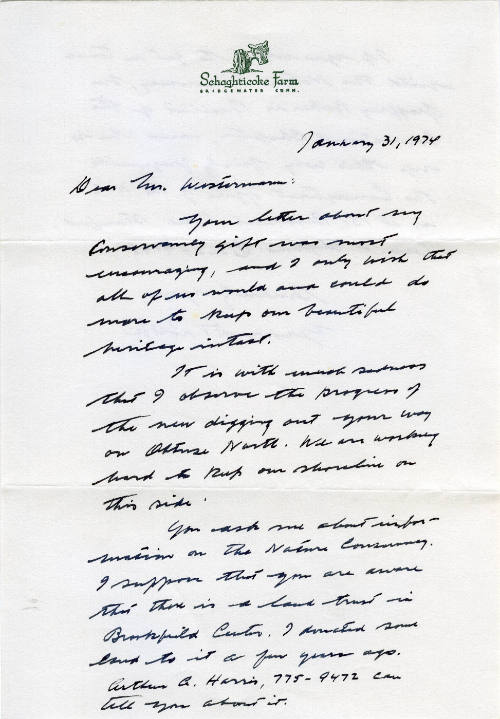 Schaghticoke Farm
BRIDGEWATER CONN.
January 31, 1974
Dear Mr. Westermann:
Your letter about my
Conservancy gift was most
encouraging, and I only wish that
all of us would and could do
more to keep our beautiful
heritage intact.
It is with much sadness
that I observe the progress of
the new digging out your way
on Obtuse North. We are working
hard to keep our shoreline on
this side.
You ask me about infor-
mation on the Nature Conservancy.
I suppose that you are aware
that there is a land trust in
Brookfield Center. I donated some
land to it a few years ago.
Arthur A. Harris, 775-9472 can
tell you about it.